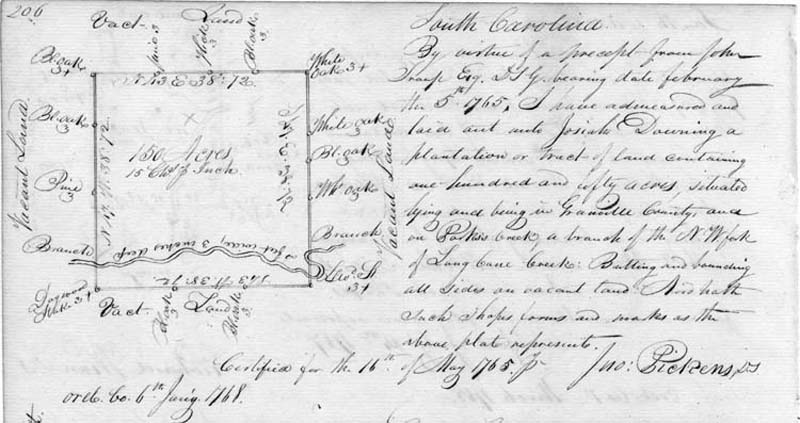 206
Vact Land
Pine 3
Hick 3
Bl oak 3
Bl oak 3+
White oak 3+
N 43 E 38:72
Bl oak 3
White oak 3
Bl oak 3
Pine 3
Wh oak 3
Vacant Land
Vacant Land
150 Acres
15 Chs p Inch
38:72
Branch
Branch
6 feet wide, 3 inches deep
38:72
Dogwood Stake 3+
3+
Vact Land
Bl oak 3
Bl oak 3
South Carolina
By virtue of a precept from John
Troup Esq. D.S.G. bearing date february
the 5th 1765, I have admeasured and
laid out unto Josiah Downing a
plantation or tract of land containing
one hundred and fifty acres, situated
lying and being in Granville County, and
on Creek, a branch of the N.W fork
of Long Cane Creek: Butting and bounding
all sides on vacant land And hath
such shape, forms and marks as the
above plat represents.
Certified for the 16th of May 1765. p Jno: Pickens, DS
ord. Co. 6th Jan'y 1768.